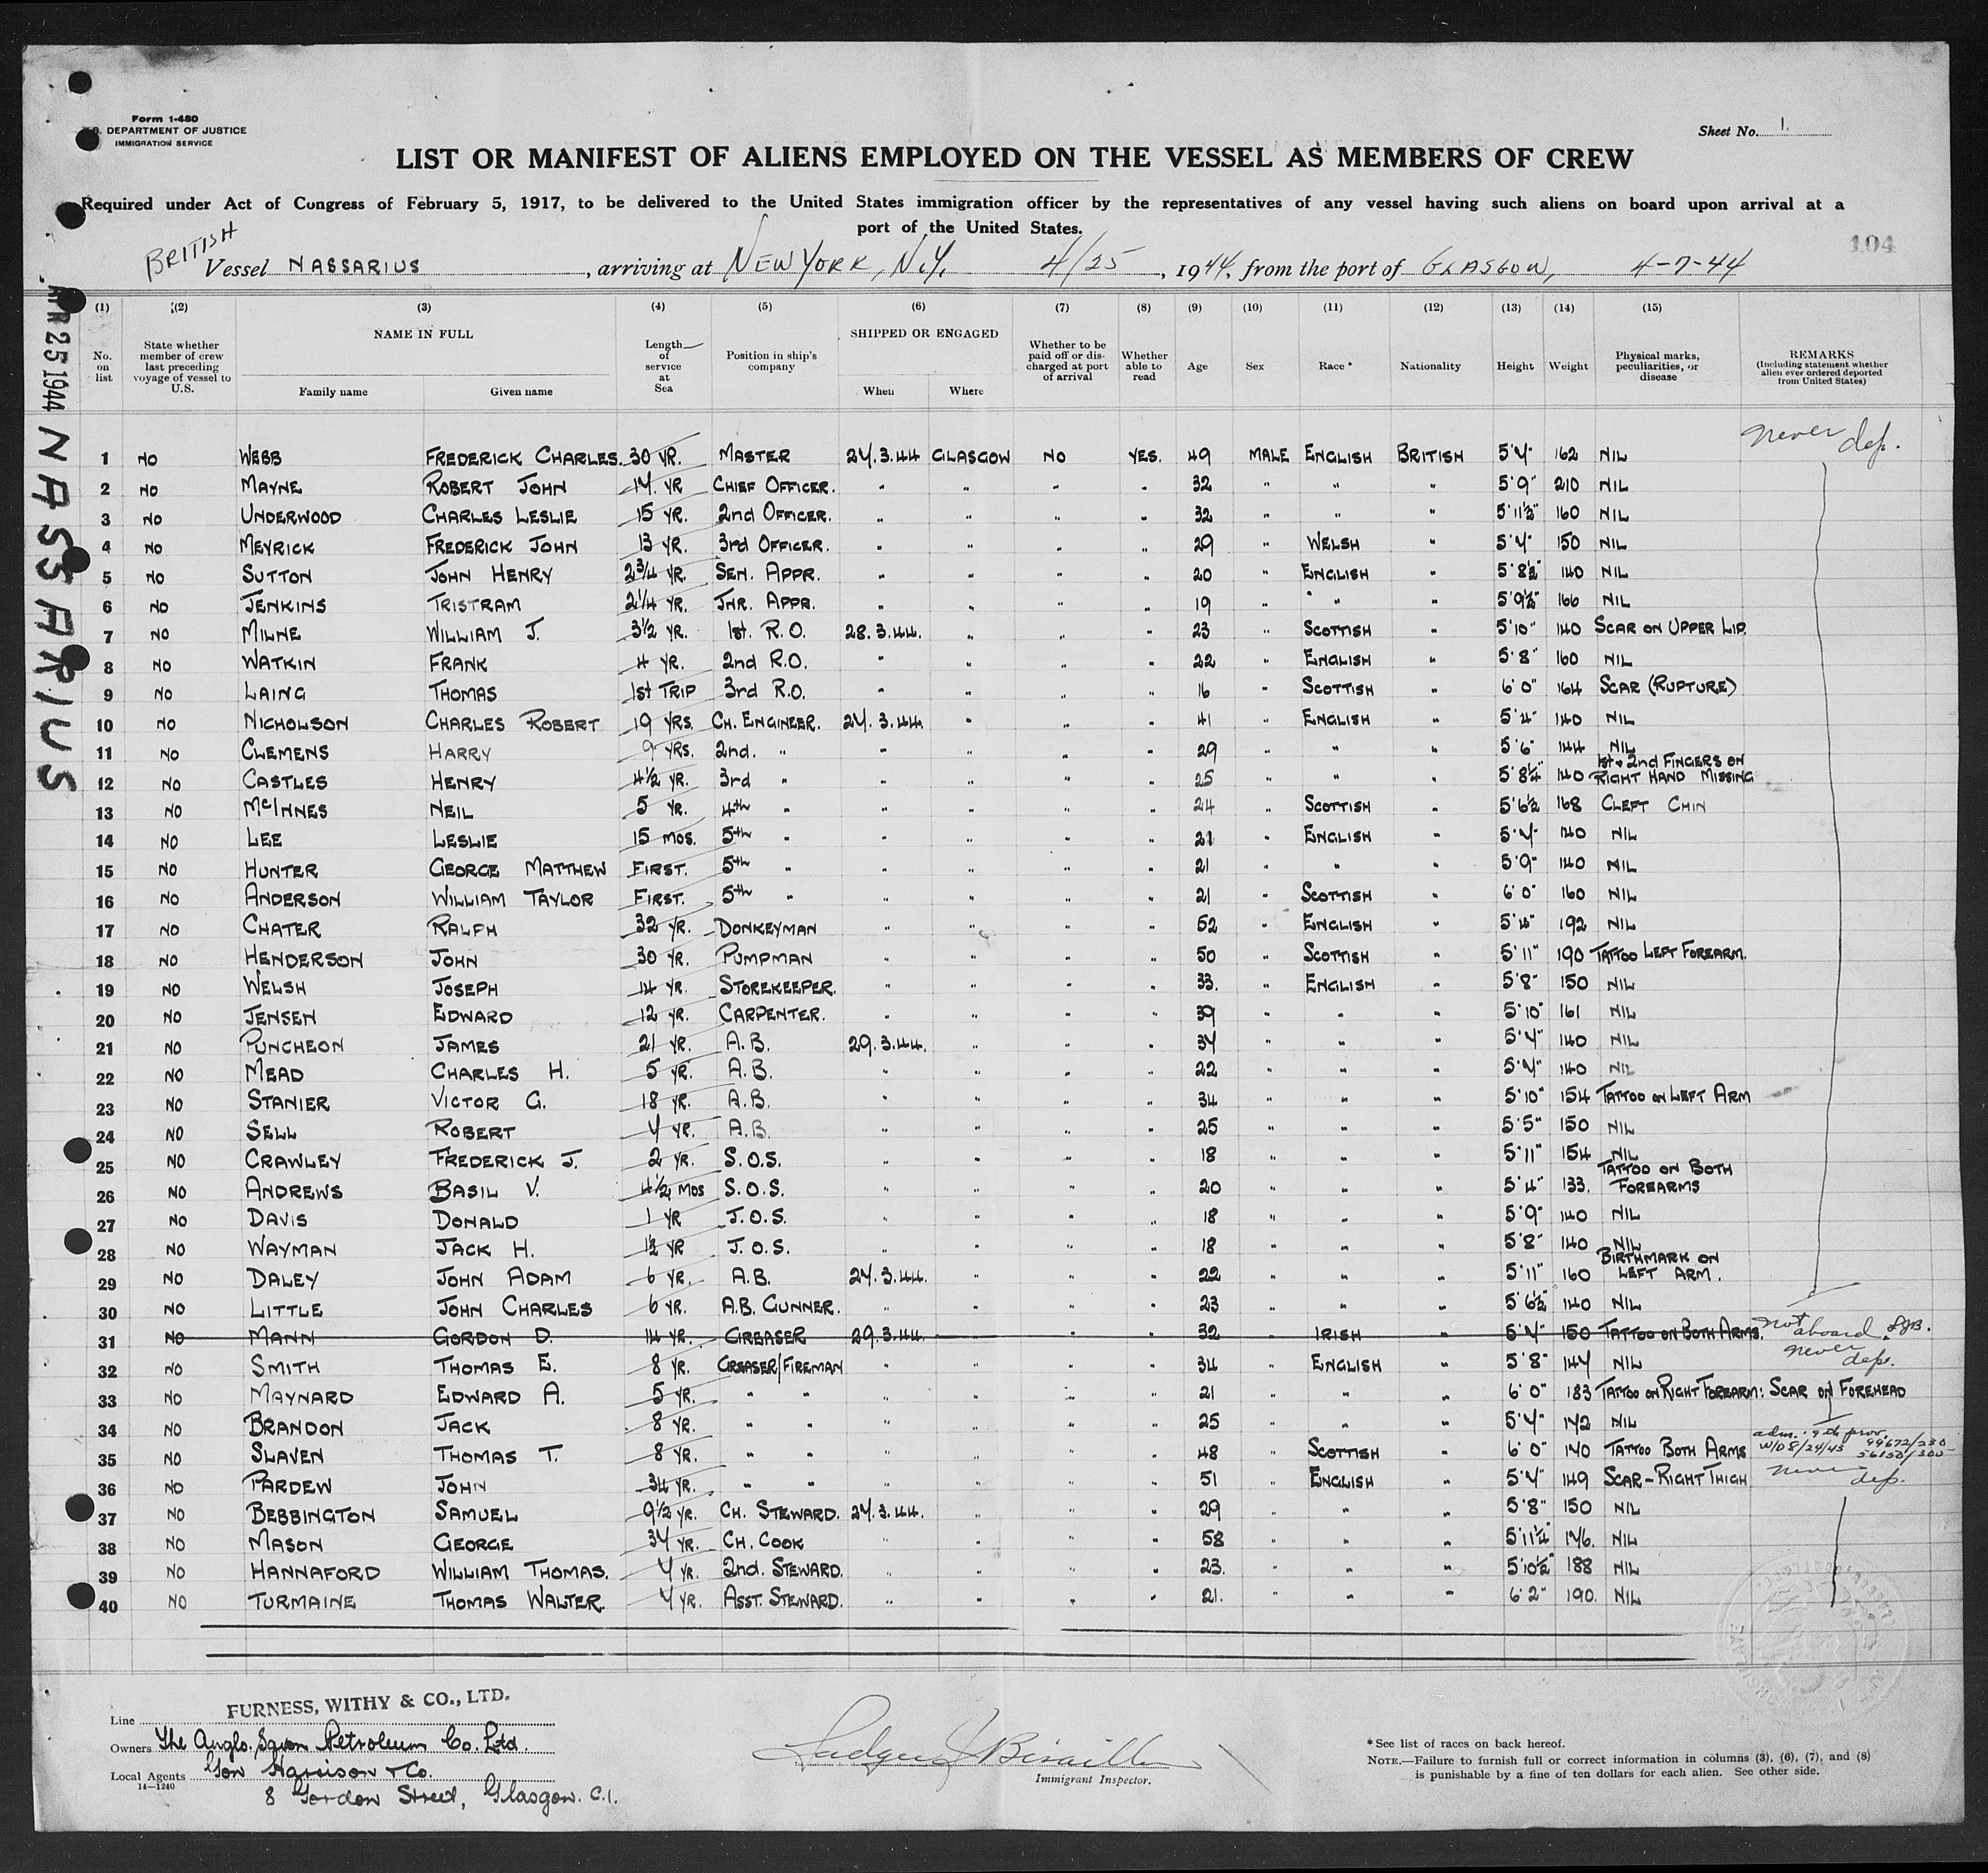 Form 1-480
U.S. DEPARTMENT OF JUSTICE
IMMIGRATION SERVICE
Sheet No. 1.
LIST OR MANIFEST OF ALIENS EMPLOYED ON THE VESSEL AS MEMBERS OF CREW
Required under Act of Congress of February 5, 1917, to be delivered to the United States immigration officer by the representatives of any vessel having such aliens on board upon arrival at a
port of the United States.
104
BRITISH
Vessel NASSARIUS, arriving at NEW YORK, N.Y. 4/25, 1944, from the port of GLASGOW, 4-7-44
APR 25 1944 NASSARIUS
(1) (2) (3) (4) (5) (6) (7) (8) (9) (10) (11) (12) (13) (14) (15)
No. on list
State whether member of crew last preceding voyage of vessel to U.S.
NAME IN FULL
Family name Given name
Length of service at Sea
Position in ship's company
SHIPPED OR ENGAGED
When Where
Whether to be paid off or discharged at port of arrival
Whether able to read
Age
Sex
Race *
Nationality
Height
Weight
Physical marks, peculiarities, or disease
REMARKS
(Including statement whether alien ever ordered deported from United States)
never dep.
1 NO WEBB FREDERICK CHARLES. 30 YR. MASTER 24.3.44 GLASGOW NO YES. 49 MALE ENGLISH BRITISH 5'4" 162 NIL
2 NO MAYNE ROBERT JOHN 14 YR CHIEF OFFICER. " " " " 32 " " " 5'9" 210 NIL
3 NO UNDERWOOD CHARLES LESLIE 15 YR. 2nd OFFICER. " " " " 32 " " " 5'11½" 160 NIL
4 NO MEYRICK FREDERICK JOHN 13 YR. 3rd OFFICER. " " " " 29 " WELSH " 5'4" 150 NIL
5 NO SUTTON JOHN HENRY 2¾ YR. SEN. APPR. " " " " 20 " ENGLISH " 5'8½" 140 NIL
6 NO JENKINS TRISTRAM 2¼ YR. JNR. APPR. " " " " 19 " " " 5'9½" 166 NIL
7 NO MILNE WILLIAM J. 3½ YR. 1st. R.O. 28.3.44. " " " 23 " SCOTTISH " 5'10" 140 SCAR ON UPPER LIP.
8 NO WATKIN FRANK 4 YR. 2nd R.O. " " " " 22 " ENGLISH " 5'8" 160 NIL
9 NO LAING THOMAS 1st TRIP 3rd R.O. " " " " 16 " SCOTTISH " 6'0" 164 SCAR (RUPTURE)
10 NO NICHOLSON CHARLES ROBERT 19 YRS. CH. ENGINEER. 24.3.44. " " " 41 " ENGLISH " 5'4" 140 NIL
11 NO CLEMENS HARRY 9 YRS. 2nd. " " " " " 29 " " " 5'6" 144 NIL
12 NO CASTLES HENRY 4½ YR. 3rd " " " " " 25 " " " 5'8¼" 140 1st & 2nd FINGERS ON RIGHT HAND MISSING
13 NO McINNES NEIL 5 YR. 4th " " " " " 24 " SCOTTISH " 5'6½ 168 CLEFT CHIN
14 NO LEE LESLIE 15 MOS. 5th " " " " " 21 " ENGLISH " 5'4" 140 NIL
15 NO HUNTER GEORGE MATTHEW FIRST. 5th " " " " " 21 " " " 5'9" 140 NIL
16 NO ANDERSON WILLIAM TAYLOR FIRST. 5th " " " " " 21 " SCOTTISH " 6'0" 160 NIL
17 NO CHATER RALPH 32 YR. DONKEYMAN " " " " 52 " ENGLISH " 5'4" 192 NIL
18 NO HENDERSON JOHN 30 YR. PUMPMAN " " " " 50 " SCOTTISH " 5'11" 190 TATTOO LEFT FOREARM.
19 NO WELSH JOSEPH 14 YR. STOREKEEPER. " " " " 33. " ENGLISH " 5'8" 150 NIL
20 NO JENSEN EDWARD 12 YR. CARPENTER. " " " " 39 " " " 5'10" 161 NIL
21 NO PUNCHEON JAMES 21 YR. A.B. 29.3.44. " " " 34 " " " 5'4" 140 NIL
22 NO MEAD CHARLES H. 5 YR. A.B. " " " " 22 " " " 5'4" 140 NIL
23 NO STANIER VICTOR G. 18 YR. A.B. " " " " 34 " " " 5'10" 154 TATTOO ON LEFT ARM
24 NO SELL ROBERT 4 YR. A.B. " " " " 25 " " " 5'5" 150 NIL
25 NO CRAWLEY FREDERICK J. 2 YR. S.O.S. " " " " 18 " " " 5'11" 154 NIL
26 NO ANDREWS BASIL V. 4½ MOS S.O.S. " " " " 20 " " " 5'4" 133. TATTOO ON BOTH FOREARMS
27 NO DAVIS DONALD 1 YR J.O.S. " " " " 18 " " " 5'9" 140 NIL
28 NO WAYMAN JACK H. 1½ YR J.O.S. " " " " 18 " " " 5'8" 140 NIL
29 NO DALEY JOHN ADAM 6 YR. A.B. 24.3.44. " " " 22 " " " 5'11" 160 BIRTHMARK ON LEFT ARM.
30 NO LITTLE JOHN CHARLES 6 YR. A.B. GUNNER. " " " " 23 " " " 5'6½" 140 NIL
31 NO MANN GORDON D. 14 YR. GREASER 29.3.44. " " " 32 " IRISH " 5'4" 150 TATTOO ON BOTH ARMS. not aboard. LJB.
32 NO SMITH THOMAS E. 8 YR. GREASER/FIREMAN " " " " 34 " ENGLISH " 5'8" 147 NIL never dep.
33 NO MAYNARD EDWARD A. 5 YR. " " " " " " 21 " " " 6'0" 183 TATTOO ON RIGHT FOREARM: SCAR ON FOREHEAD
34 NO BRANDON JACK 8 YR. " " " " " " 25 " " " 5'4" 172 NIL
35 NO SLAVEN THOMAS T. 8 YR. " " " " " " 48 " SCOTTISH " 6'0" 170 TATTOO BOTH ARMS adm. 9th prov. W/D 8/24/43 99672/230 56150/300
36 NO PARDEW JOHN 34 YR. " " " " " " 51 " ENGLISH " 5'4" 149 SCAR-RIGHT THIGH never dep.
37 NO BEBBINGTON SAMUEL 9½ YR. CH. STEWARD. 24.3.44. " " " 29 " " " 5'8" 150 NIL
38 NO MASON GEORGE 34 YR. CH. COOK " " " " 58 " " " 5'11¼" 176. NIL
39 NO HANNAFORD WILLIAM THOMAS. 4 YR. 2nd. STEWARD. " " " " 23. " " " 5'10½" 188 NIL
40 NO TURMAINE THOMAS WALTER. 4 YR. ASST. STEWARD. " " " " 21. " " " 6'2" 190. NIL
Line FURNESS, WITHY & CO., LTD.
Owners The Anglo. Saxon Petroleum Co. Ltd.
Local Agents Gow Harrison & Co.
14-1240
8 Gordon Street, Glasgow. C.1.
Immigrant Inspector.
* See list of races on back hereof.
NOTE.—Failure to furnish full or correct information in columns (3), (6), (7), and (8)
is punishable by a fine of ten dollars for each alien. See other side.